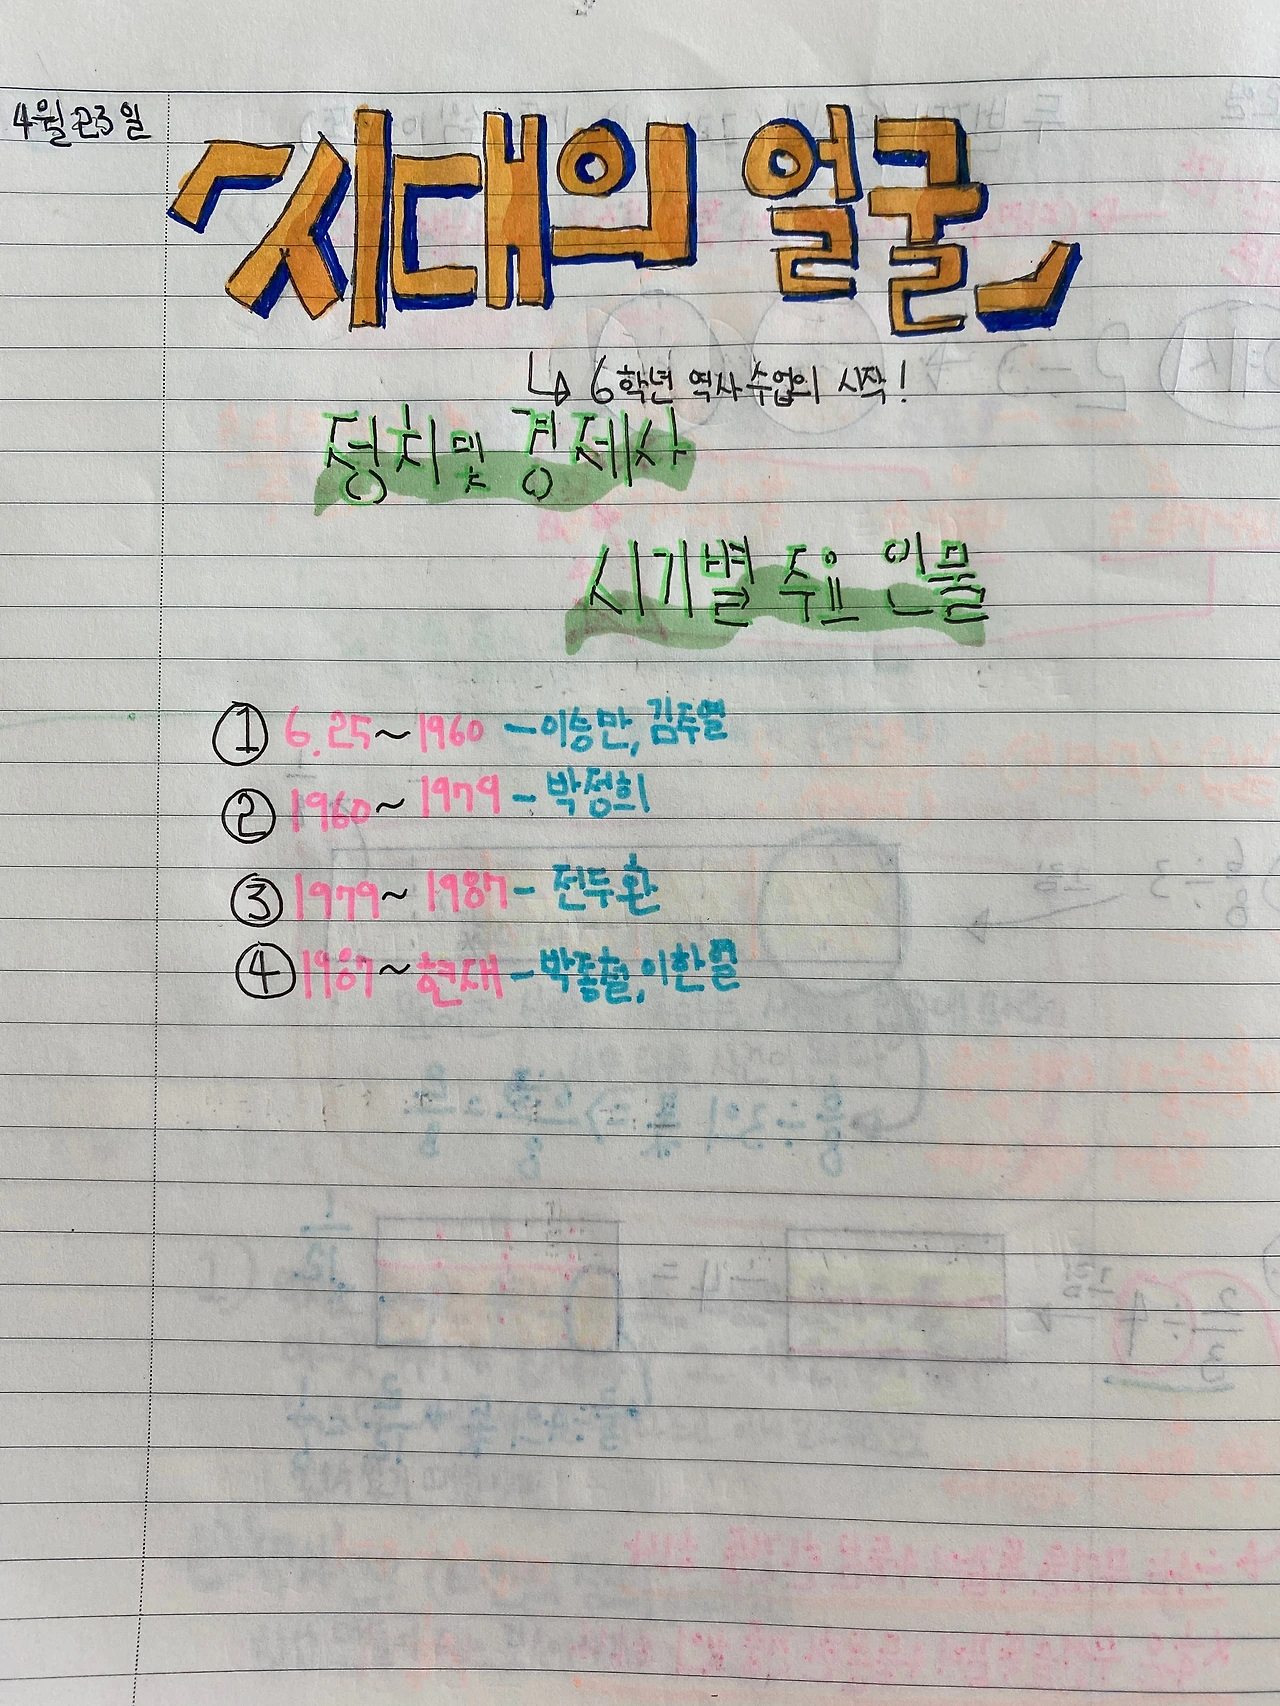 4월 23일
「시대의 얼굴」
↳ 6학년 역사 수업의 시작!
정치 및 경제사
시기별 주요 인물
① 6.25~1960 - 이승만, 김주열
② 1960~1979 - 박정희
③ 1979~1987 - 전두환
④ 1987~현재 - 박종철, 이한열